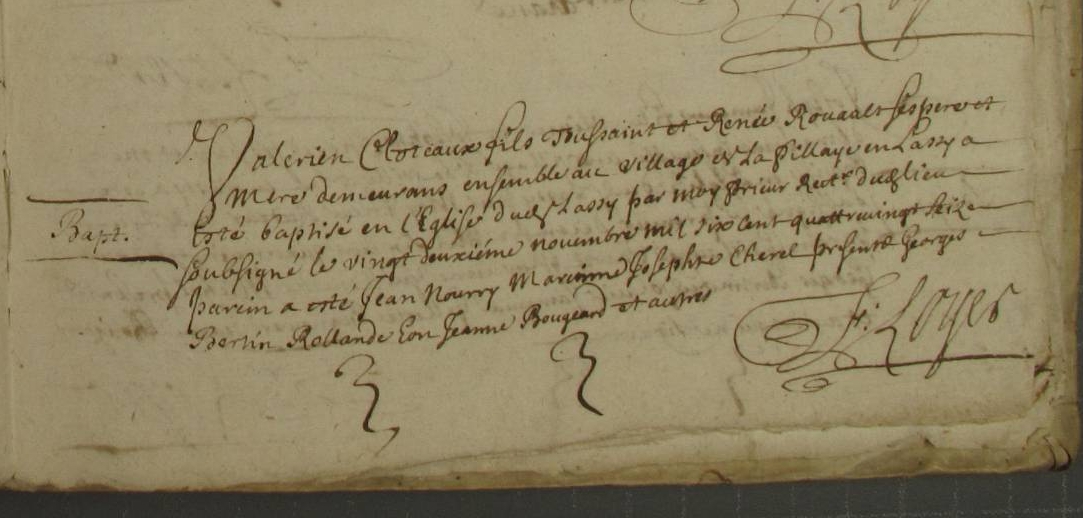 Valerien Cloteaux fils Toussaint et Renée Rouault ses pere et
mere demeurans ensemble au village de la Pillaye en Lassy a
Bapt.
esté baptisé en l'Eglise dud. Lassy par moy prieur Rectr. dud. lieu
soubsigné le vingt deuxiéme novembre mil six cent quattrevingt seize
parein a esté Jean Nourry Mareinne Josephte Cherel presente Georges
Bertin Rollande Eon Jeanne Bougeard et autres
F. Loyes